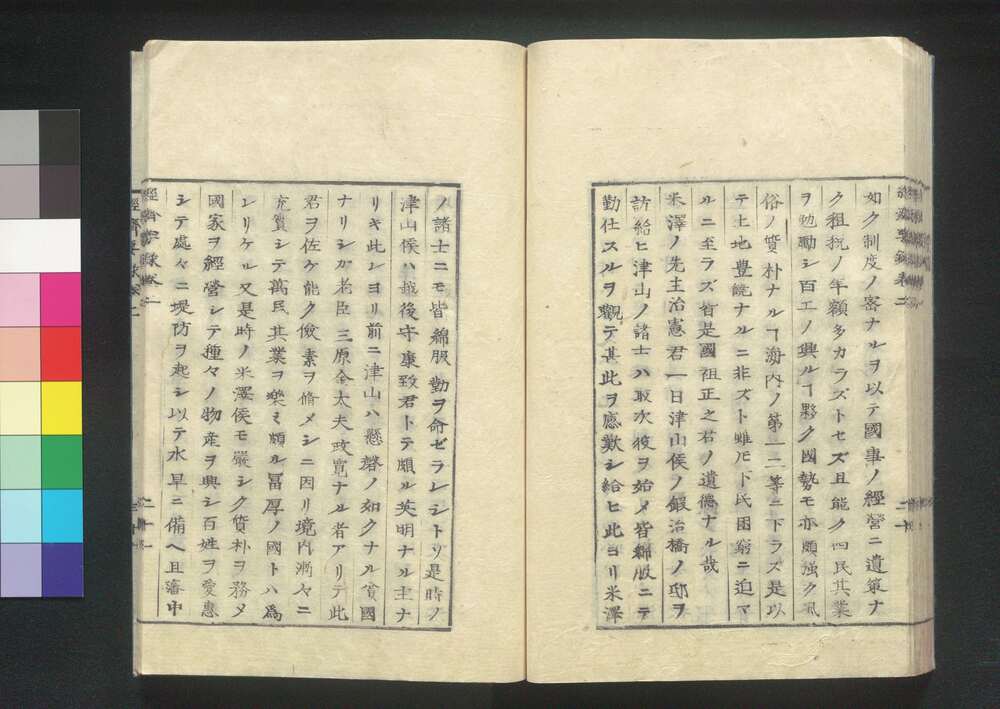 如ク制度ノ密ナルヲ以テ國事ノ經營ニ遺策ナ
ク租税ノ年額多カラズトセズ且能ク四民其業
ヲ勉勵シ百工ノ興ルヿ夥ク國勢モ亦頗強ク風
俗ノ質朴ナルヿ海内ノ第一二等ニ下ラズ是以
テ土地豊饒ナルニ非ズト雖𪜈下民困窮ニ迫マ
ルニ至ラズ皆是國祖正之君ノ遺德ナル哉
米澤ノ先主治憲君一日津山侯ノ鍜冶橋ノ邸ヲ
訪給ヒ津山ノ諸士ハ取次役ヲ始メ皆綿服ニテ
勤仕スルヲ觀テ甚此ヲ應歎シ給ヒ此ヨリ米澤
ノ諸士ニモ皆綿服勤ヲ命ゼラレシトリ是時ノ
津山侯ハ越後守康致君トテ頗ル英明ナル主ナ
リキ此レヨリ前ニ津山ハ懸磬ノ如クナル貧國
ナリシガ老臣三原金太夫政寛ナル者アリテ此
君ヲ佐ケ能ク儉素ヲ脩メシニ因リ境内漸々ニ
充實シテ萬民其業ヲ樂ミ頗ル冨厚ノ國トハ爲
レリケル又是時ノ米澤侯モ嚴シク質朴ヲ務メ
國家ヲ經營シテ種々ノ物産ヲ興シ百姓ヲ愛惠
シテ處々ニ堤防ヲ起シ以テ水旱ニ備へ且藩中